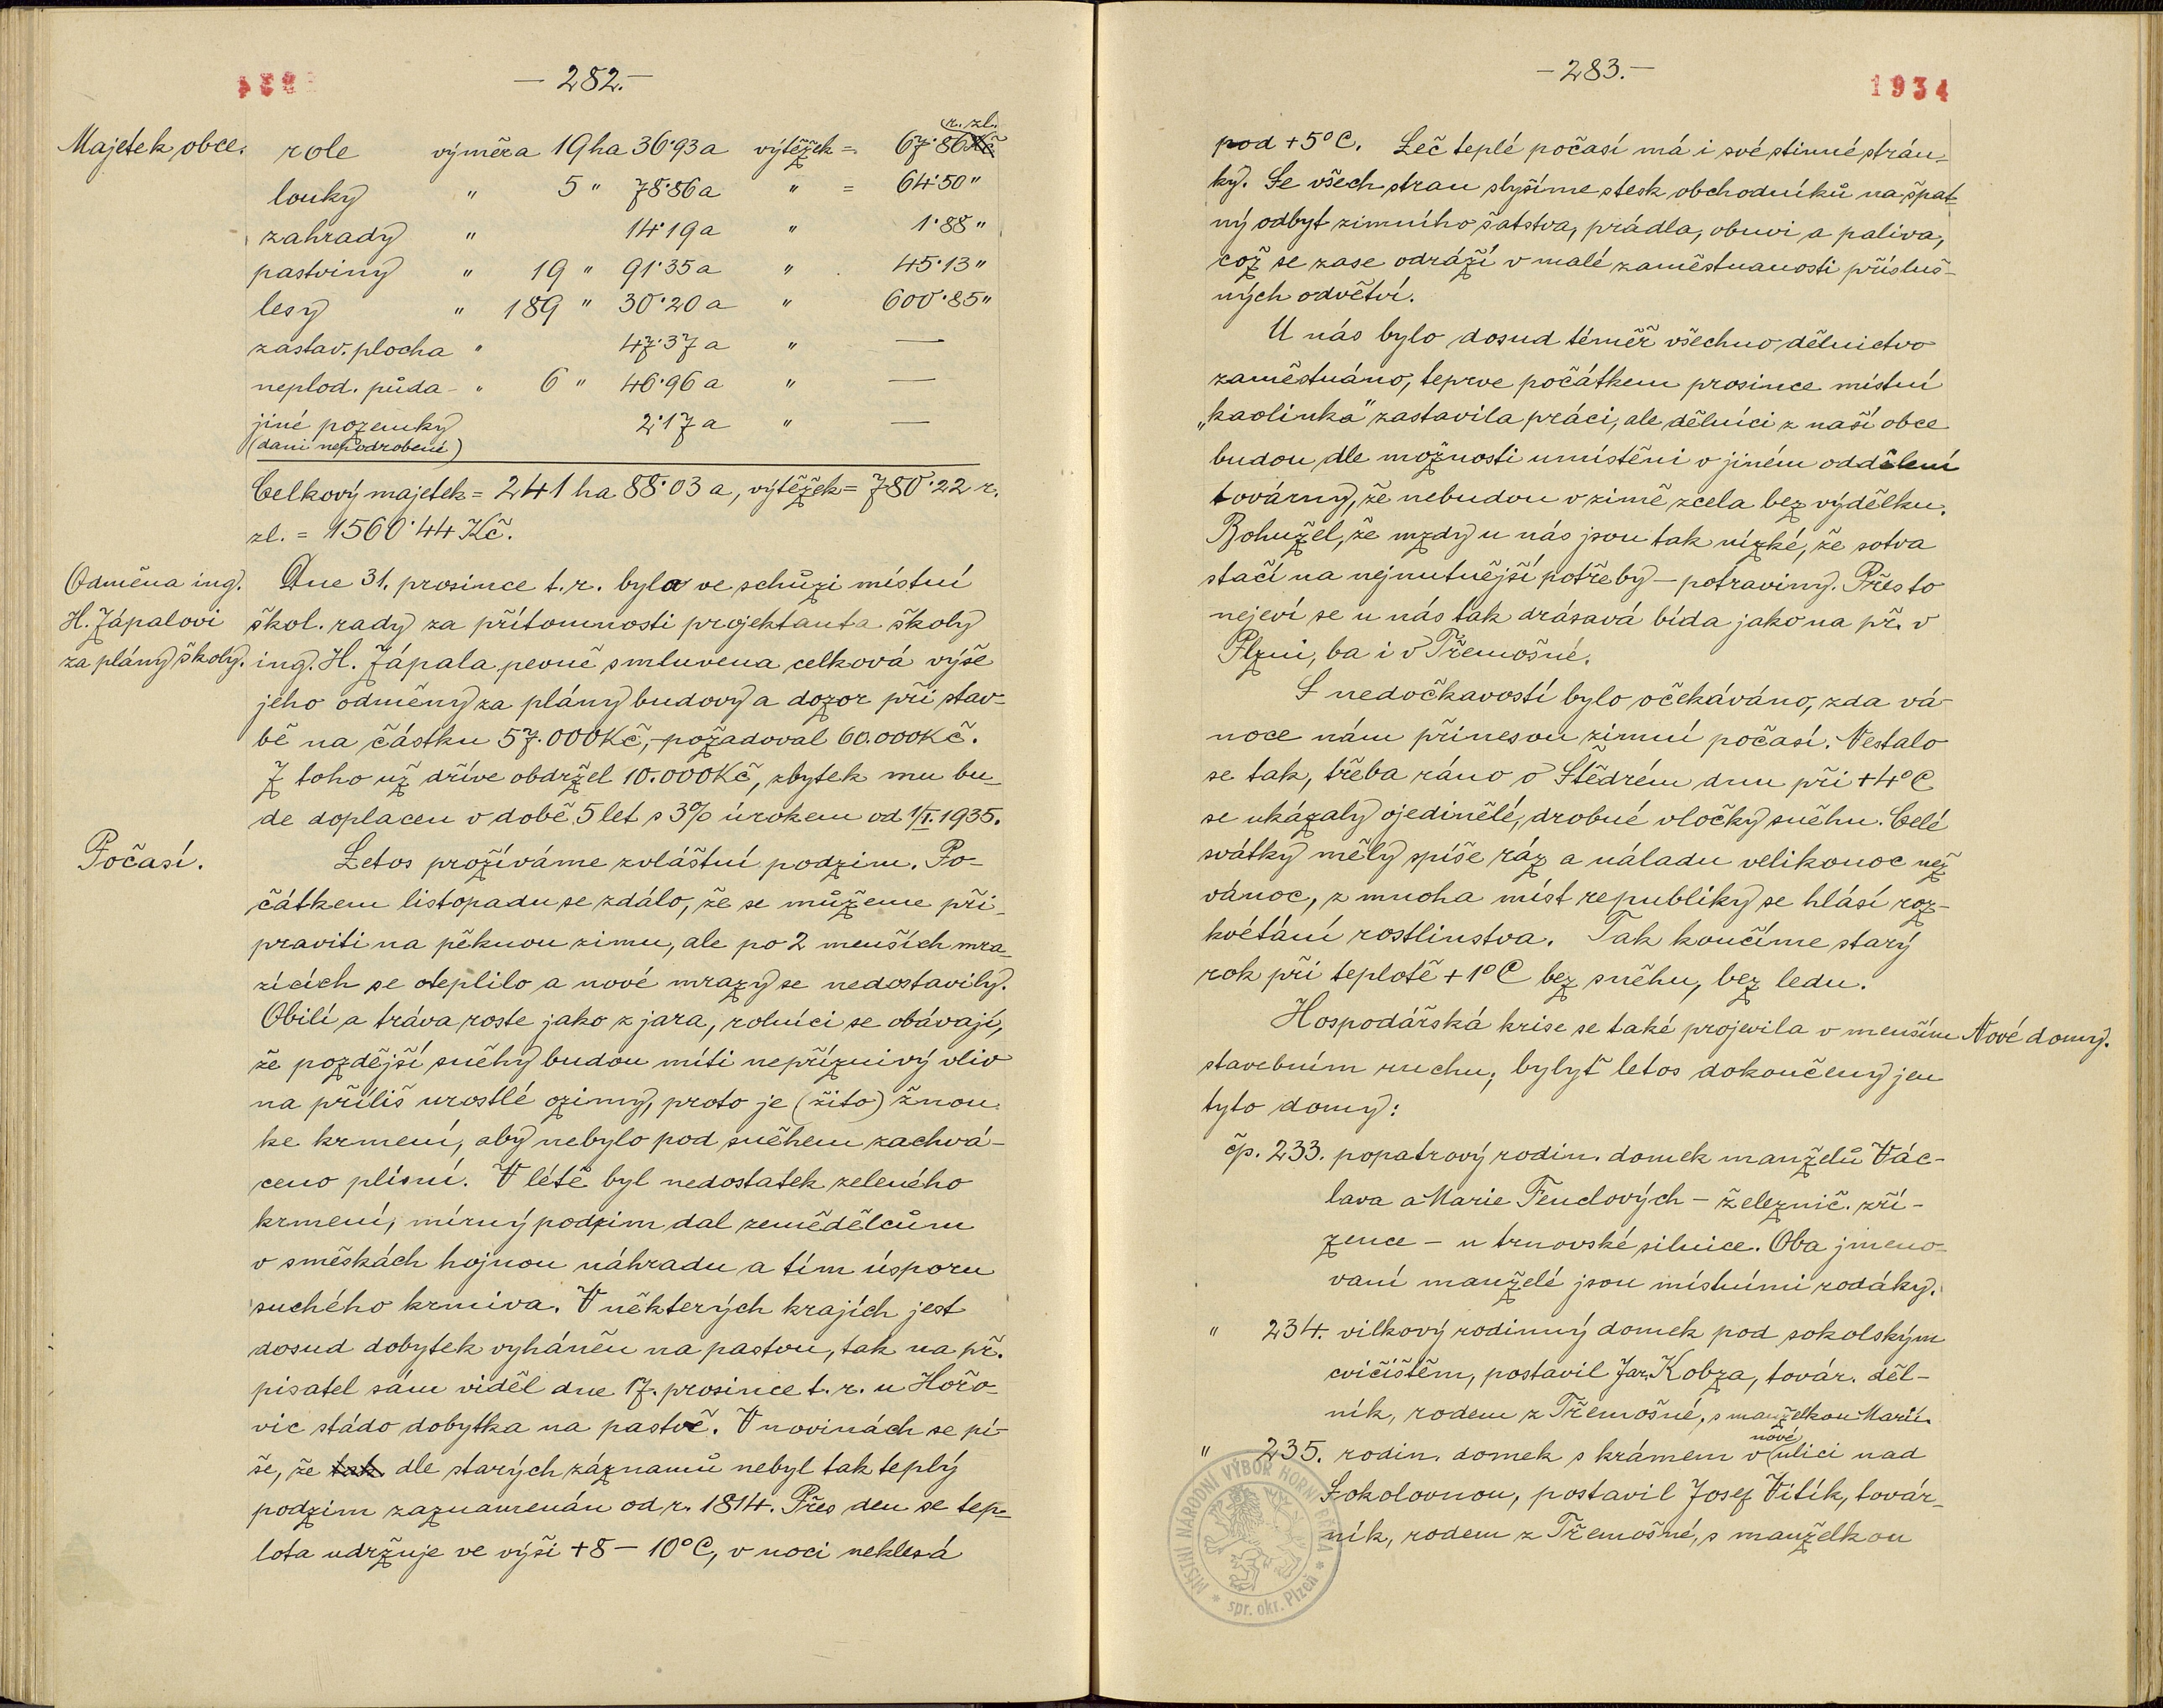 1934
— 282. —
Majetek obce.
r. zl.
role výměra 19 ha 36·93 a výtěžek = 67·86 Kč
louky " 5 " 78·86 a " = 64·50 "
zahrady " 14·19 a " 1·88 "
pastviny " 19 " 91·35 a " 45·13 "
lesy " 189 " 30·20 a " 600·85 "
zastav. plocha " 47·37 a " —
neplod. půda - " 6 " 46·96 a " —
jiné pozemky 2·17 a " —
(dani nepodrobené)
Celkový majetek = 241 ha 88·03 a, výtěžek = 780·22 r.
zl. = 1560·44 Kč.
Odměna ing.
H. Zápalovi
za plány školy.
Dne 31. prosince t. r. byla ve schůzi místní
škol. rady za přítomnosti projektanta školy
ing. H. Zápala pevně smluvena celková výše
jeho odměny za plány budovy a dozor při stav-
bě na částku 57.000 Kč, - požadoval 60.000 Kč.
Z toho už dříve obdržel 10.000 Kč, zbytek mu bu-
de doplacen v době 5 let s 3% úrokem od 1/I. 1935.
Počasí.
Letos prožíváme zvláštní podzim. Po-
čátkem listopadu se zdálo, že se můžeme při-
praviti na pěknou zimu, ale po 2 menších mra-
zících se oteplilo a nové mrazy se nedostavily.
Obilí a tráva roste jako z jara, rolníci se obávají,
že pozdější sněhy budou míti nepříznivý vliv
na příliš urostlé ozimy, proto je (žito) žnou
ke krmení, aby nebylo pod sněhem zachvá-
ceno plísní. V létě byl nedostatek zeleného
krmení, mírný podzim dal zemědělcům
v směskách hojnou náhradu a tím úsporu
suchého krmiva. V některých krajích jest
dosud dobytek vyháněn na pastvu, tak na př.
pisatel sám viděl dne 17. prosince t. r. u Hořo-
vic stádo dobytka na pastvě. V novinách se pí-
še, že tak dle starých záznamů nebyl tak teplý
podzim zaznamenán od r. 1814. Přes den se tep-
lota udržuje ve výši +8 — 10°C, v noci neklesá
— 283. —
1934
pod +5°C. Leč teplé počasí má i své stinné strán-
ky. Se všech stran slyšíme stesk obchodníků na špat-
ný odbyt zimního šatstva, prádla, obuvi a paliva,
což se zase odráží v malé zaměstnanosti přísluš-
ných odvětví.
U nás bylo dosud téměř všechno dělnictvo
zaměstnáno, teprve počátkem prosince místní
„kaolinka" zastavila práci, ale dělníci z naší obce
budou dle možnosti umístěni v jiném oddělení
továrny, že nebudou v zimě zcela bez výdělku.
Bohužel, že mzdy u nás jsou tak nízké, že sotva
stačí na nejnutnější potřeby — potraviny. Přes to
nejeví se u nás tak drásavá bída jako na př. v
Plzni, ba i v Třemošné.
S nedočkavostí bylo očekáváno, zda vá-
noce nám přinesou zimní počasí. Nestalo
se tak, třeba ráno o Štědrém dnu při +4°C
se ukázaly ojedinělé, drobné vločky sněhu. Celé
svátky měly spíše ráz a náladu velikonoc než
vánoc, z mnoha míst republiky se hlásí roz-
kvétání rostlinstva. Tak končíme starý
rok při teplotě +1°C bez sněhu, bez ledu.
Hospodářská krise se také projevila v menším
Nové domy.
stavebním ruchu, bylyť letos dokončeny jen
tyto domy:
čp. 233. popatrový rodin. domek manželů Vác-
lava a Marie Fenclových — železnič. zří-
zence — u trnovské silnice. Oba jmeno-
vaní manželé jsou místními rodáky.
" 234. vilkový rodinný domek pod sokolským
cvičištěm, postavil Jar. Kobza, továr. děl-
ník, rodem z Třemošné, s manželkou Marií.
nové
" 235. rodin. domek s krámem v ulici nad
Sokolovnou, postavil Josef Vitík, továr-
ník, rodem z Třemošné, s manželkou
MÍSTNÍ NÁRODNÍ VÝBOR HORNÍ BŘÍZA
* spr. okr. Plzeň *